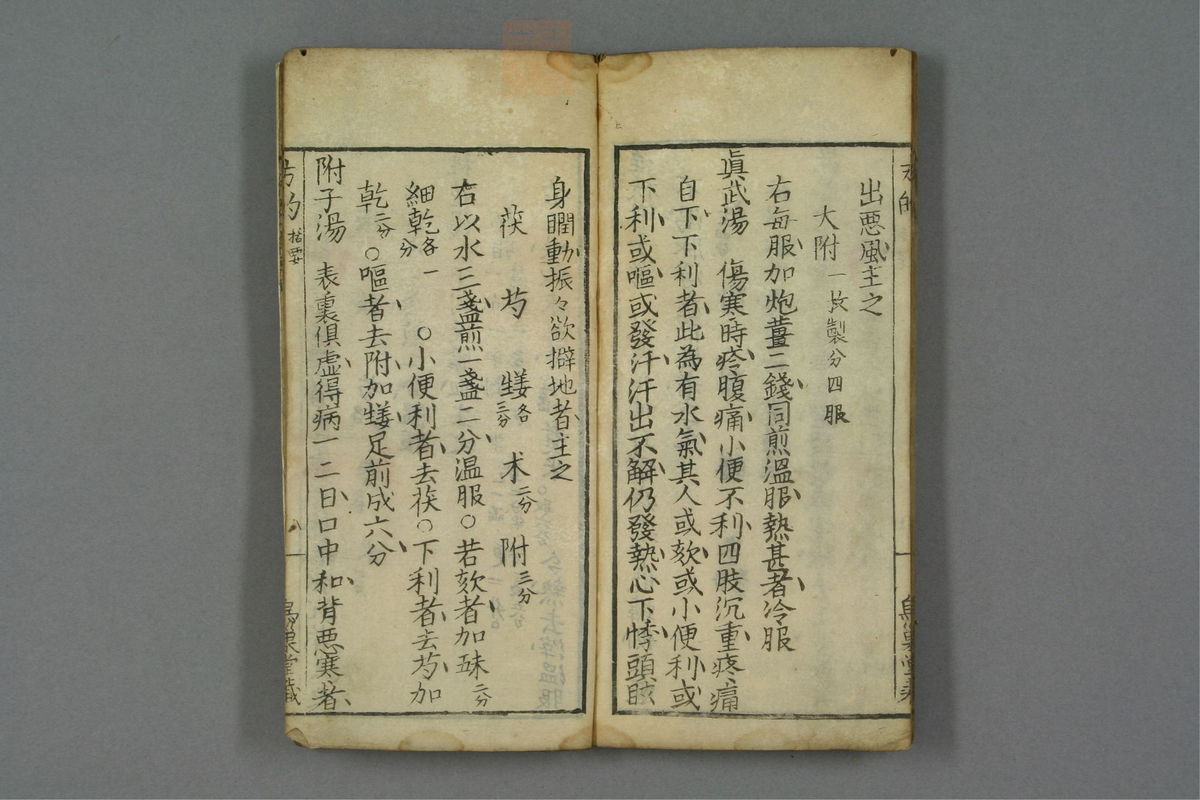 出悪風主之
大附一枚製分四服
右每服加炮薑二錢同煎溫服熱甚者冷服
眞武湯 傷寒時疼腹痛小便不利四肢沉重疼痛
自下下利者此為有水氣其人或欬或小便利或
下利或嘔或發汗汗出不解仍發熱心下悸頭眩
身瞤動振々欲擗地者主之
茯 芍 䒳各三分 术二分 附三分
右以水三盞煎一盞二分温服○若欬者加味二分
細乾各一分 ○小便利者去茯○下利者去芍加
乾二分○嘔者去附加䒳足前成六分
附子湯 表裏俱虚得病一二日口中和背悪寒者
方的 括要 八